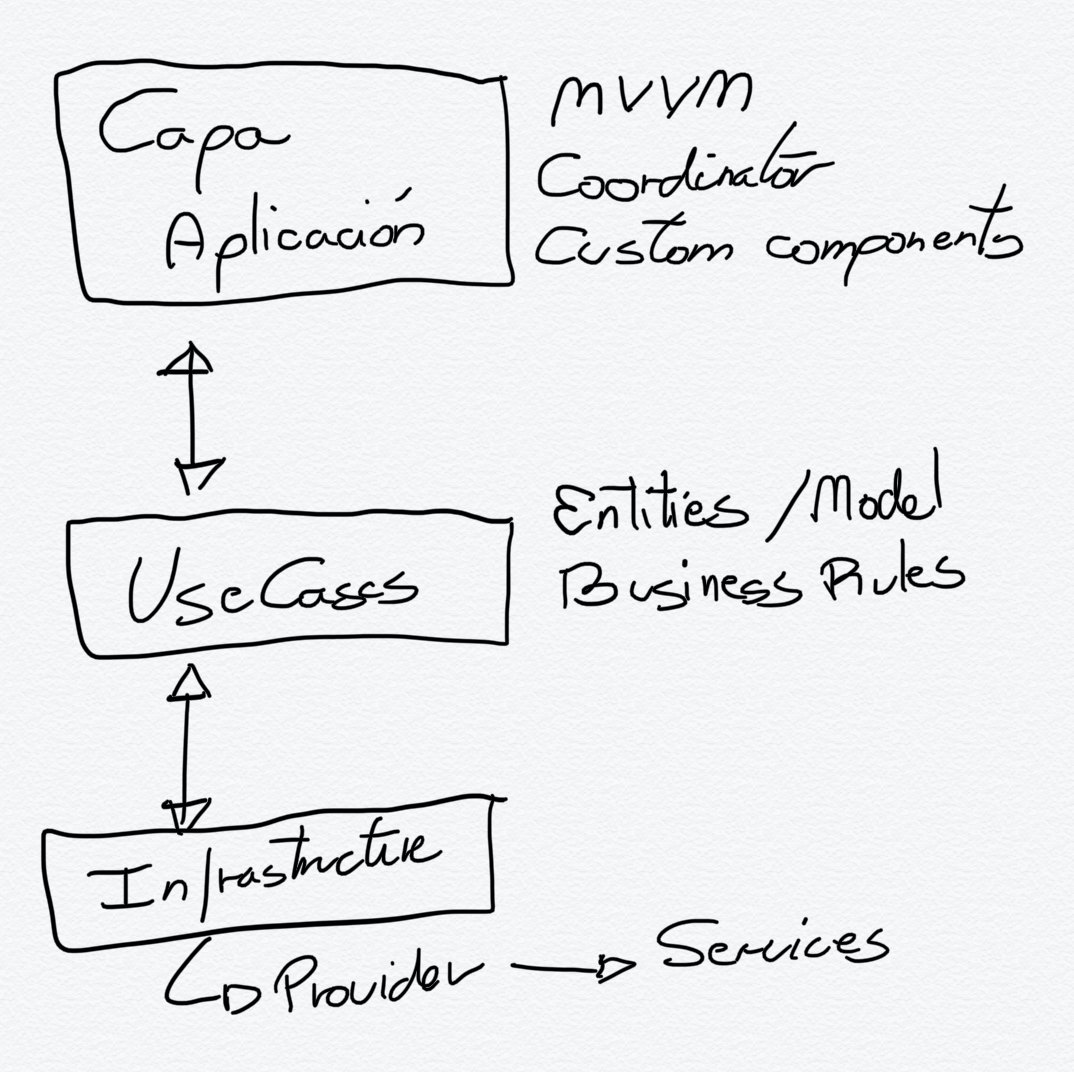 Capa
Aplicación
MVVM
Coordinator
Custom components
UseCases
Entities / Model
Business Rules
Infrastructure
Provider
Services